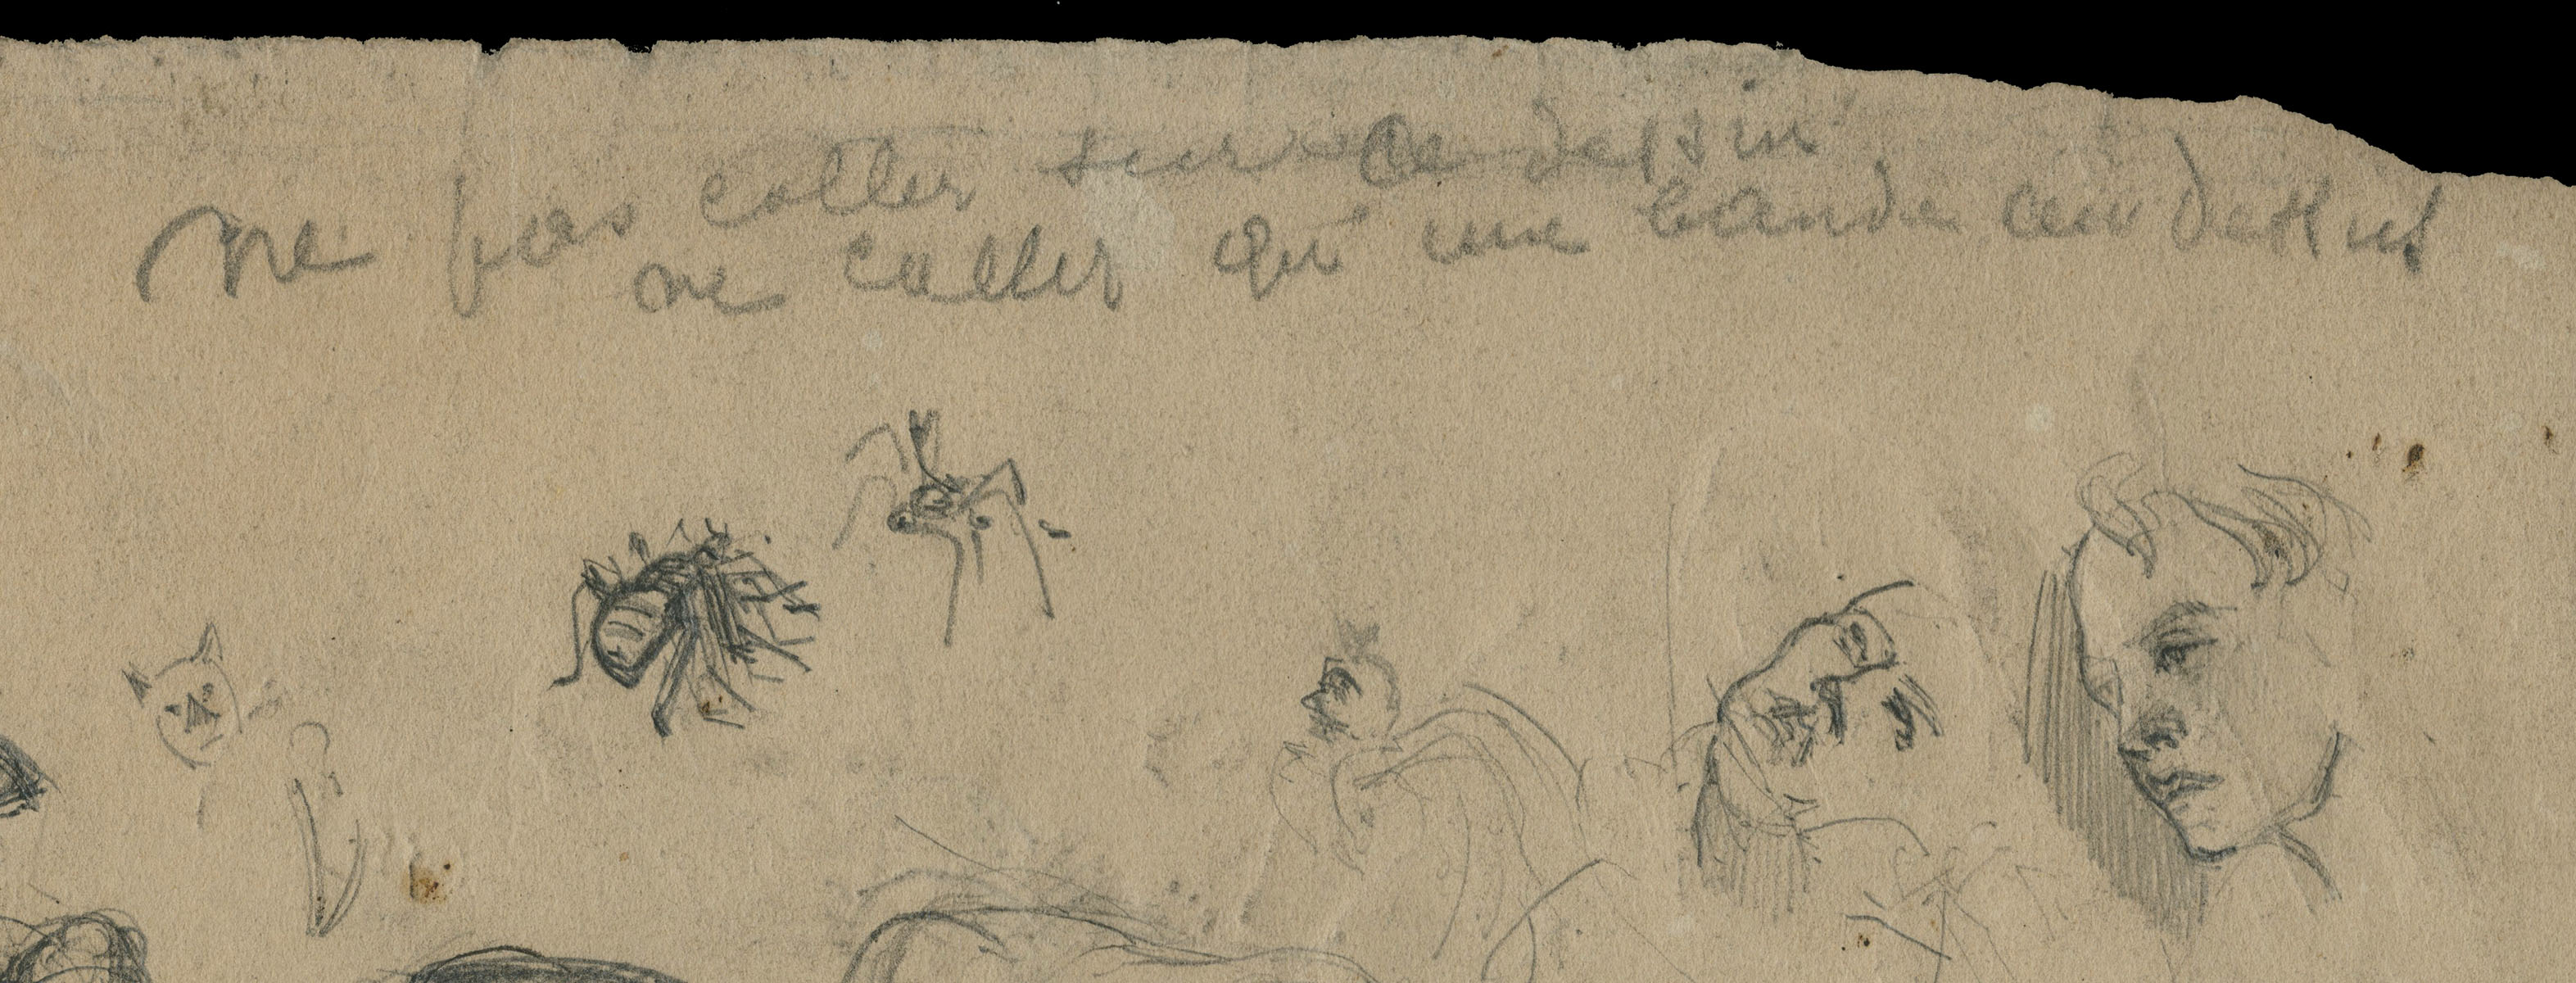 ne pas coller sur ce dessin
ne coller qu'une bande au dessus